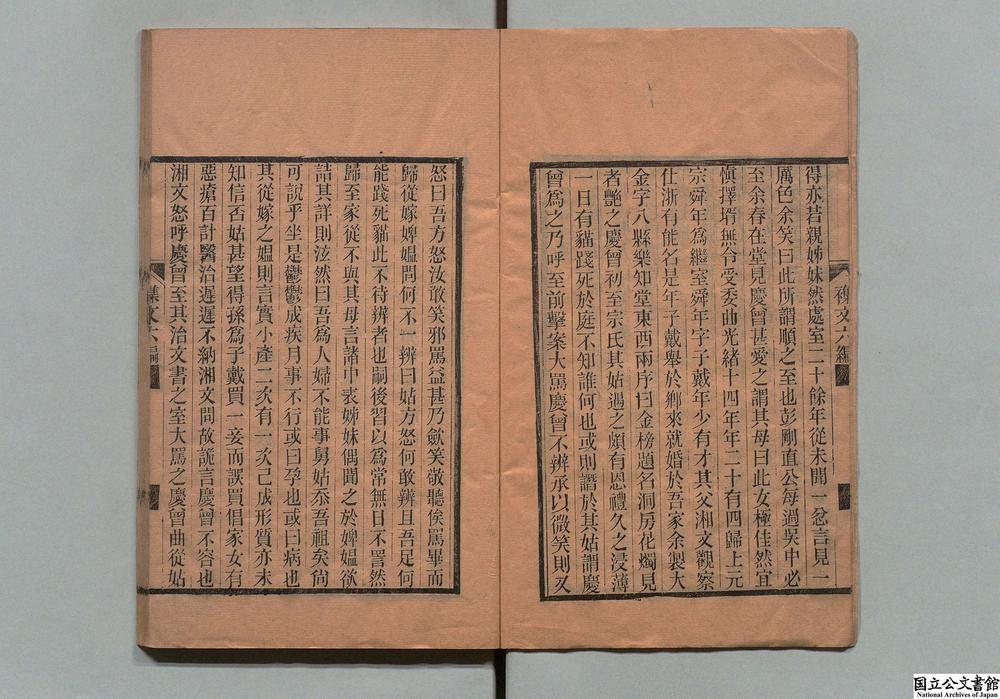 得亦若親姊妹然處室二十餘年從未聞一忿言見一
厲色余笑曰此所謂順之至也彭剛直公每過吳中必
至余春在堂見慶曾甚愛之謂其母曰此女極佳然宜
慎擇壻無令受委曲光緒十四年年二十有四歸上元
宗舜年爲繼室舜年字子戴年少有才其父湘文觀察
仕浙有能名是年子戴舉於鄉來就婚於吾家余製大
金字八縣樂知堂東西兩序曰金榜題名洞房花燭見
者艷之慶曾初至宗氏其姑遇之頗有恩禮久之浸薄
一日有貓踐死於庭不知誰何也或則譖於其姑謂慶
曾爲之乃呼至前擊案大罵慶曾不辨承以微笑則又
襍文六編
怒曰吾方怒汝敢笑邪罵益甚乃歛笑敬聽俟罵畢而
歸從嫁婢媼問何不一辨曰姑方怒何敢辨且吾足何
能踐死貓此不待辨者也嗣後習以爲常無日不詈然
歸至家從不與其母言諸中表姊妹偶聞之於婢媼欲
詰其詳則泫然曰吾爲人婦不能事舅姑忝吾祖矣尙
可說乎坐是鬱鬱成疾月事不行或曰孕也或曰病也
其從嫁之媼則言實小產二次有一次已成形質亦未
知信否姑甚望得孫爲子戴買一妾而誤買倡家女有
惡瘡百計醫治遲遲不納湘文問故謊言慶曾不容也
湘文怒呼慶曾至其治文書之室大罵之慶曾曲從姑
襍文六編
国立公文書館
National Archives of Japan